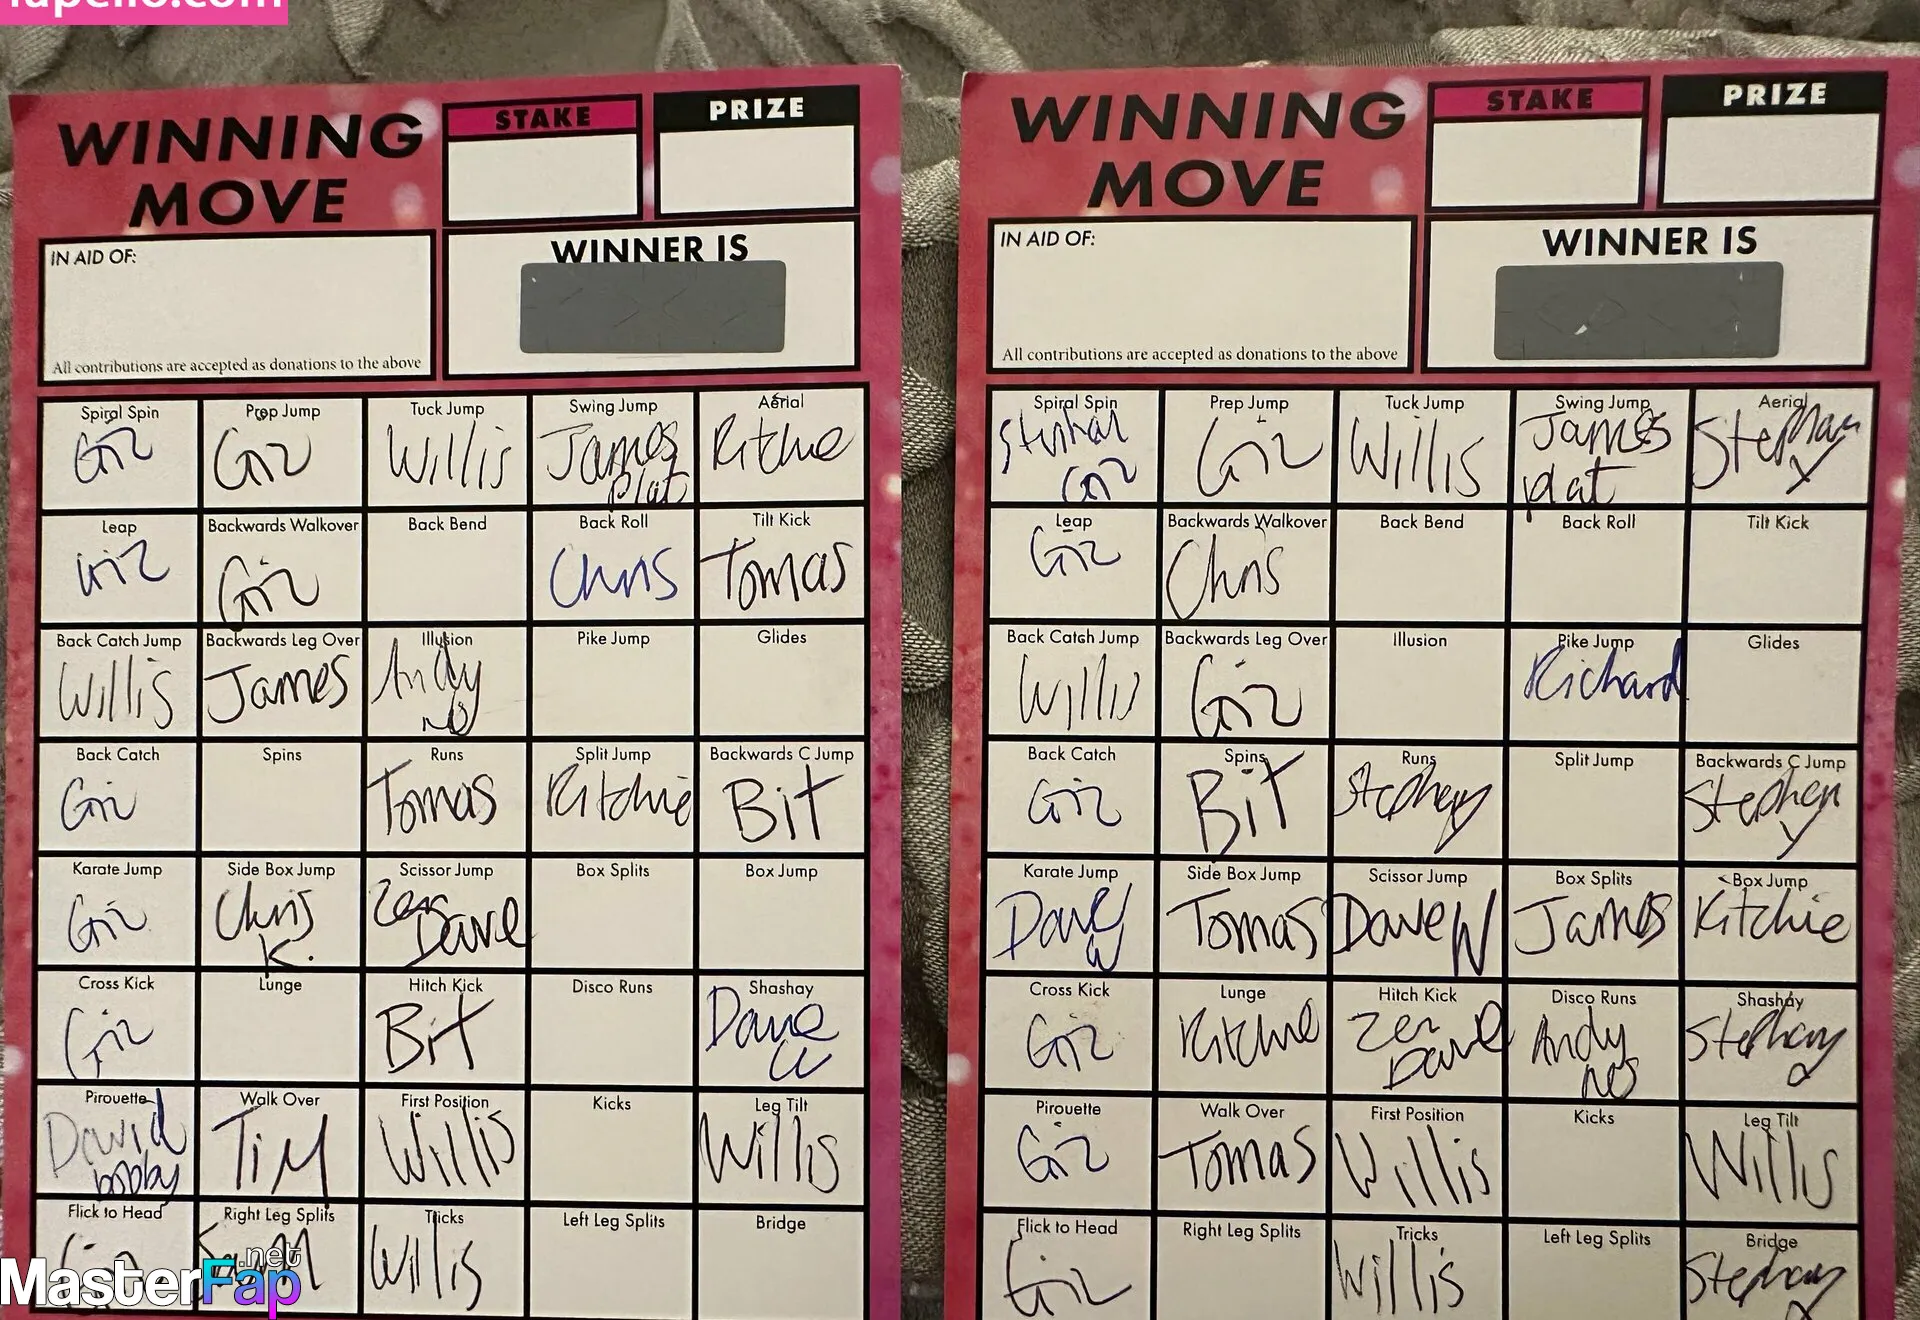 WINNING
MOVE
STAKE
PRIZE
IN AID OF:
All contributions are accepted as donations to the above
WINNER IS
Spiral Spin
Giz
Prep Jump
Giz
Tuck Jump
Willis
Swing Jump
James
plat
Aerial
Ritchie
Leap
Giz
Backwards Walkover
Giz
Back Bend
Back Roll
Chris
Tilt Kick
Tomas
Back Catch Jump
Willis
Backwards Leg Over
James
Illusion
Andy
Pike Jump
Glides
Back Catch
Giz
Spins
Runs
Tomas
Split Jump
Ritchie
Backwards C Jump
Bit
Karate Jump
Giz
Side Box Jump
Chris
K.
Scissor Jump
Zen
Dave
Box Splits
Box Jump
Cross Kick
Giz
Lunge
Hitch Kick
Bit
Disco Runs
Shashay
Dave
Pirouette
David
bobby
Walk Over
Tim
First Position
Willis
Kicks
Leg Tilt
Willis
Flick to Head
Giz
Right Leg Splits
Sam
Tricks
Willis
Left Leg Splits
Bridge
WINNING
MOVE
STAKE
PRIZE
IN AID OF:
All contributions are accepted as donations to the above
WINNER IS
Spiral Spin
Giz
Prep Jump
Giz
Tuck Jump
Willis
Swing Jump
James
plat
Aerial
Leap
Giz
Backwards Walkover
Chris
Back Bend
Back Roll
Tilt Kick
Back Catch Jump
Willis
Backwards Leg Over
Giz
Illusion
Pike Jump
Richard
Glides
Back Catch
Giz
Spins
Bit
Runs
Split Jump
Backwards C Jump
Stephen
y
Karate Jump
Dave
W
Side Box Jump
Tomas
Scissor Jump
Dave W
Box Splits
James
Box Jump
Ritchie
Cross Kick
Giz
Lunge
Ritchie
Hitch Kick
Zen
Dave
Disco Runs
Andy
Shashay
Pirouette
Giz
Walk Over
Tomas
First Position
Willis
Kicks
Leg Tilt
Willis
Flick to Head
Giz
Right Leg Splits
Tricks
Willis
Left Leg Splits
Bridge
MasterFap
.net